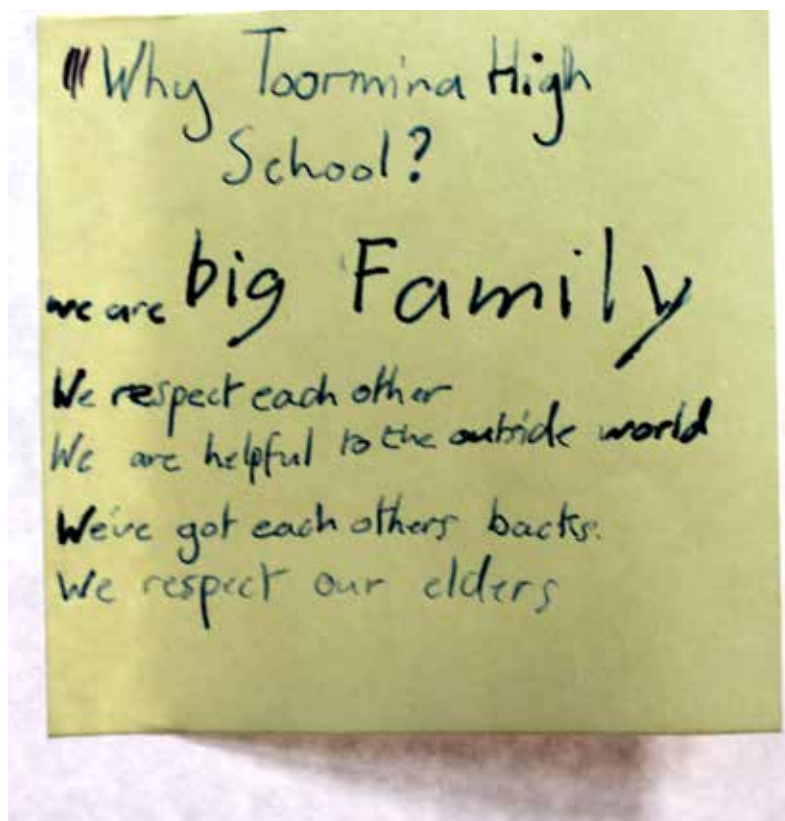 Why Toormina High
School?
we are big Family
We respect each other
We are helpful to the outside world
We've got each others backs.
We respect our elders